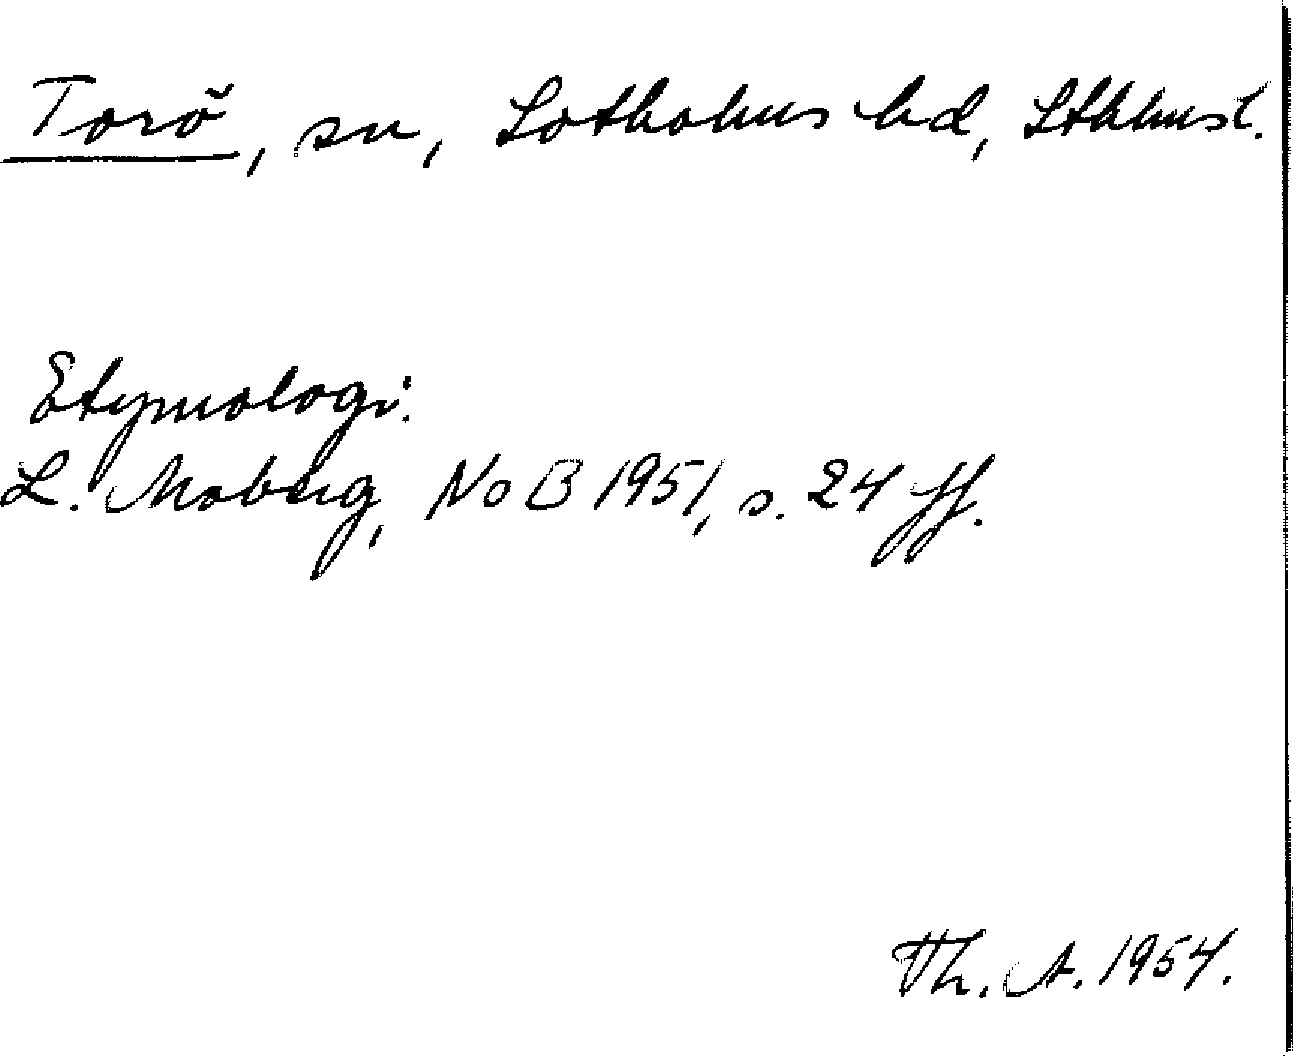 Torö, sn, Sotholms hd, Sthlms l.
Etymologi:
L. Moberg, NoB 1951, s. 24 ff.
Th. A. 1954.